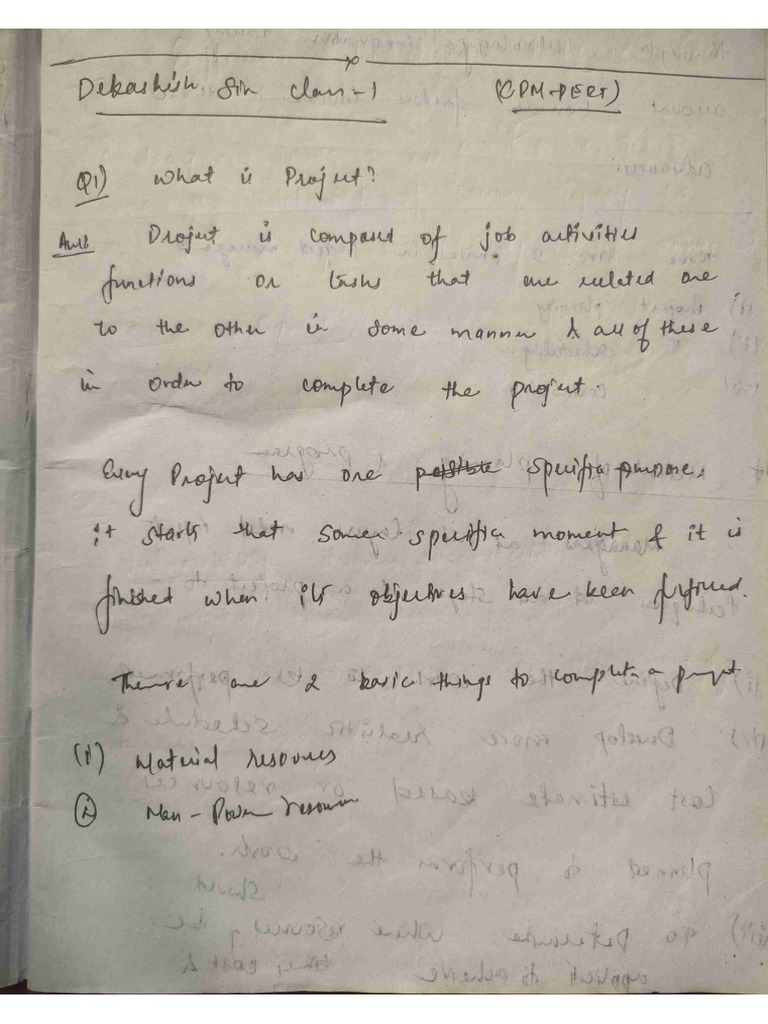 Debashish Sir Class-1 (CPM-PERT)
Q1) What is Project?
Ans:- Project is composed of job activities
functions or tasks that are related one
to the other in some manner & all of these
in order to complete the project.
Every Project has one possible specific purpose,
it starts that some specific moment & it is
finished when its objectives have been fulfilled.
There are 2 basic things to complete a project
(ii) Material resources
(i) Man-Power resources